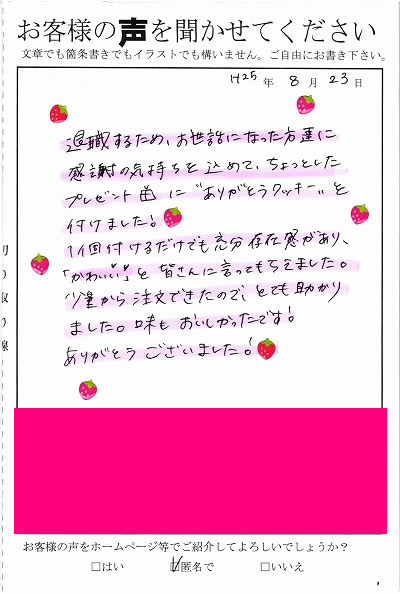 お客様の声を聞かせてください
文章でも箇条書きでもイラストでも構いません。ご自由にお書き下さい。
H25年 8月 23日
退職するため、お世話になった方達に
感謝の気持ちを込めて、ちょっとした
プレゼントに"ありがとうクッキー"を
付けました!
1個付けるだけでも充分存在感があり、
「かわいい」と皆さんに言ってもらえました。
少量から注文できたので、とても助かり
ました。味もおいしかったです!
ありがとうございました!
切り取り線
お客様の声をホームページ等でご紹介してよろしいでしょうか?
□はい ☑匿名で □いいえ